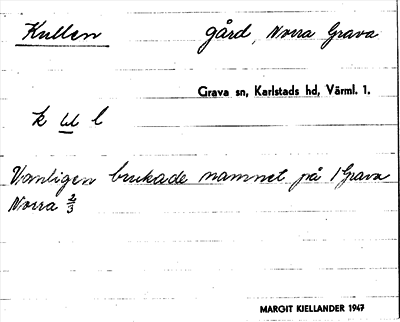 Kullen gård, Norra Grava
Grava sn, Karlstads hd, Värml. l.
k u l
Vanligen brukade namnet på 1 Grava
Norra 2/3
MARGIT KIELLANDER 1947